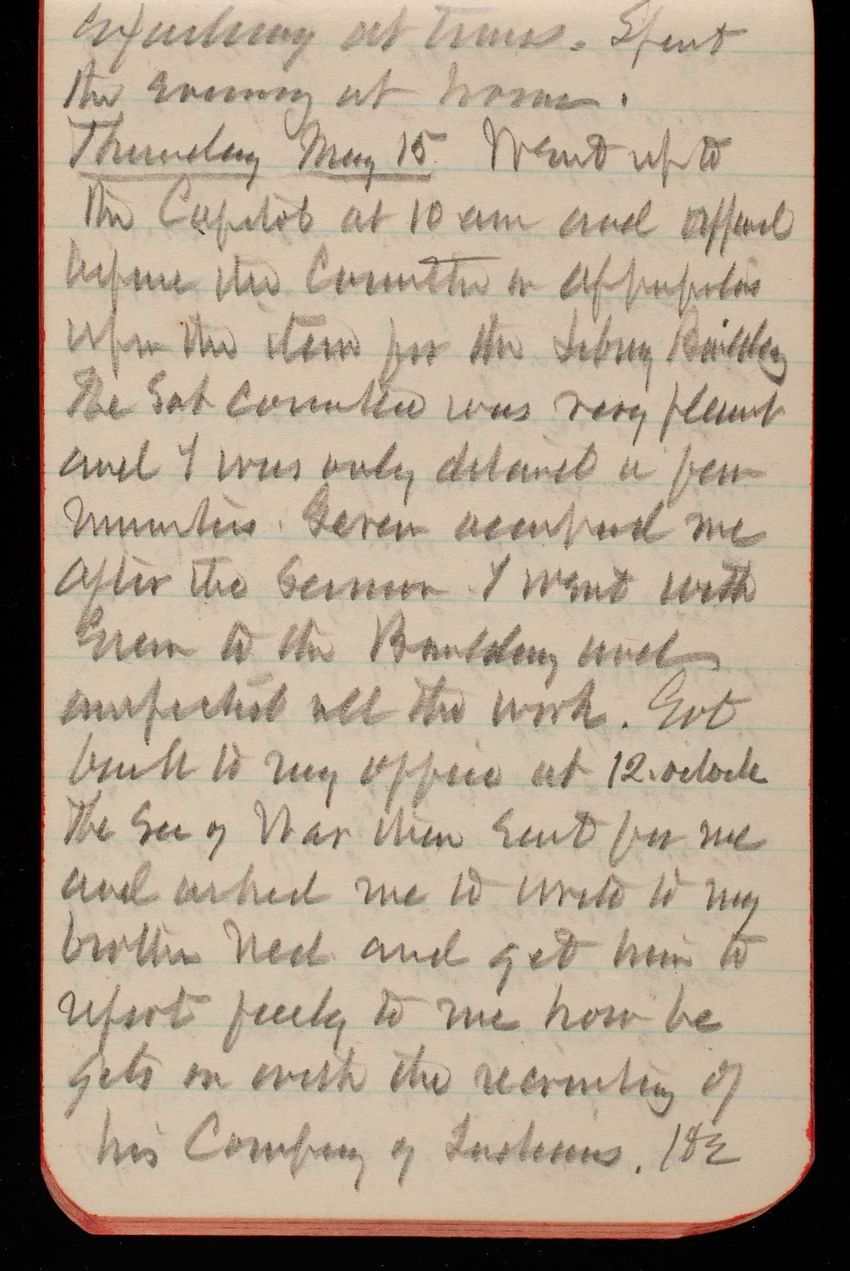 at times. Spent
the evening at home.
Thursday May 15. Went up to
the Capitol at 10 am and appeared
before the Committee on Appropriations
upon the item for the Library Building
The Sub Committee was very pleasant
and I was only detained a few
minutes. Green accompanied me
after the I went with
Green to the Building and
inspected all the work. Got
back to my office at 12 oclock
The Sec of War then sent for me
and asked me to write to my
brother Ned and get him to
report freely to me how he
gets on with the recruiting of
his Company of Indians. He